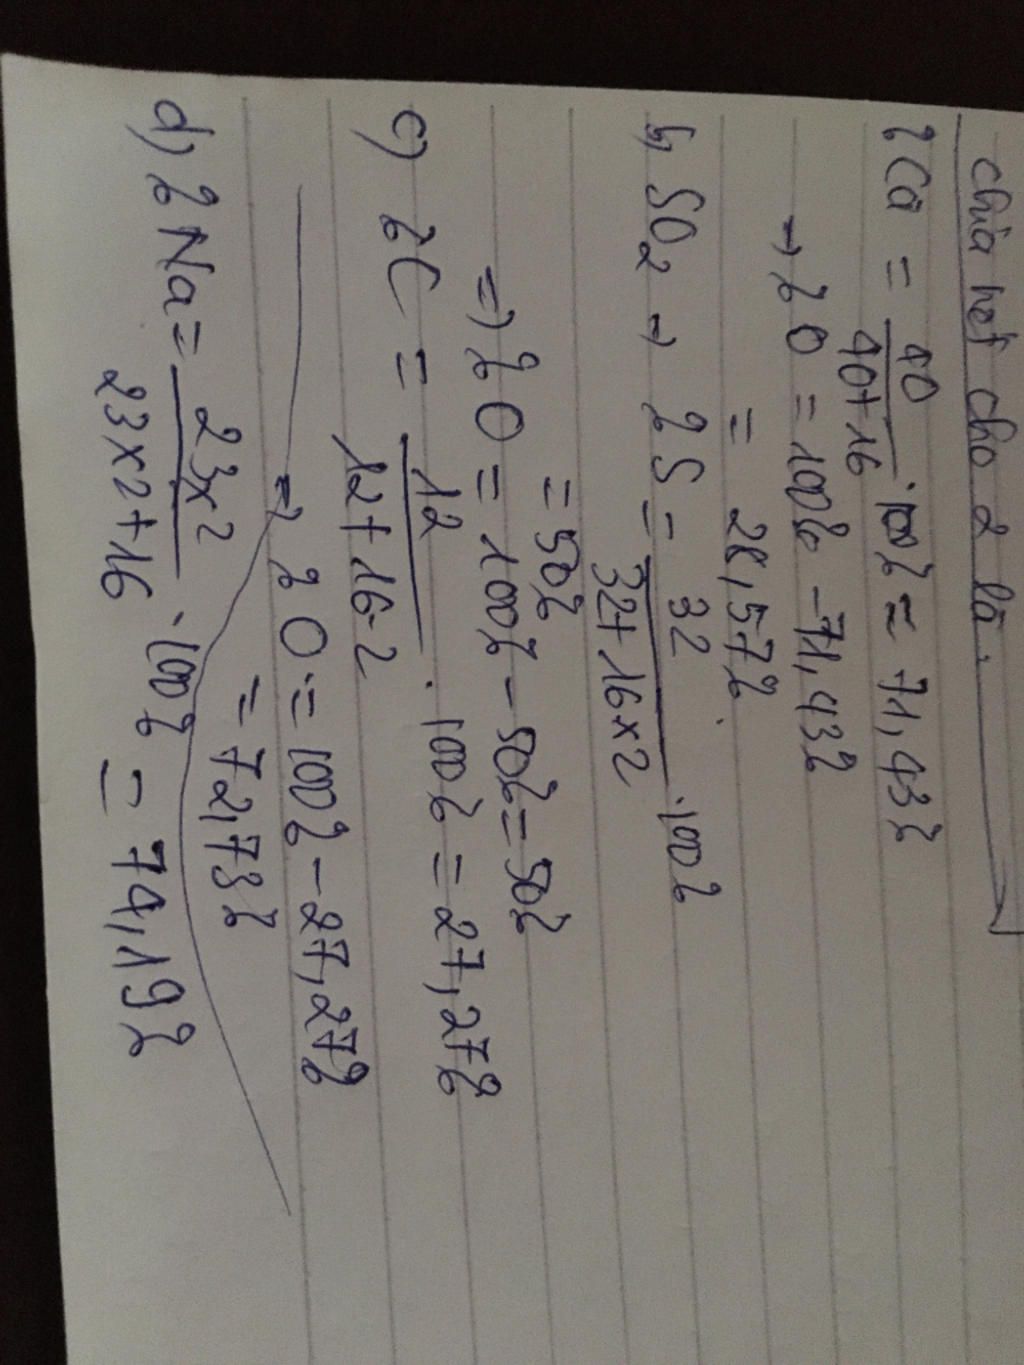 chia hết cho 2 là.
% Ca = 40/40+16 . 100% = 71,43%
→ % O = 100% - 71,43%
= 28,57%.
b, SO2 → % S = 32/32+16x2 . 100%
= 50%
=> % O = 100% - 50% = 50%
c) % C = 12/12+16.2 . 100% = 27,27%
=> % O = 100% - 27,27%
= 72,73%
d) % Na = 23x2/23x2+16 . 100% = 74,19%